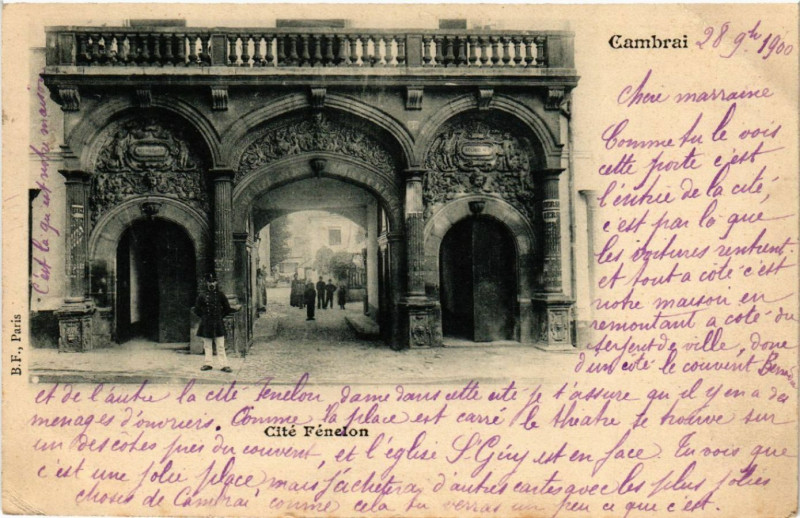 Cambrai 28 9bre 1900
Chere marraine
Comme tu le vois
cette porte c'est
l'entrée de la cité,
c'est par la que
les voitures rentrent
et tout a coté c'est
notre maison en
remontant a coté du
serjent de ville, donc
d'un coté le couvent
et de l'autre la cité Fenelon, dame dans cette cité je t'assure qu il y en a des
menages d'ouvriers. Comme la place est carré le théatre se trouve sur
un des cotés pres du couvent, et l'église St Géry est en face. Tu vois que
c'est une jolie place mais j'achetera d'autres cartes avec les plus jolies
choses de Cambrai comme cela tu verras un peu ce que c'est.
Cité Fénelon
C'est la qu'est notre maison
B.F., Paris